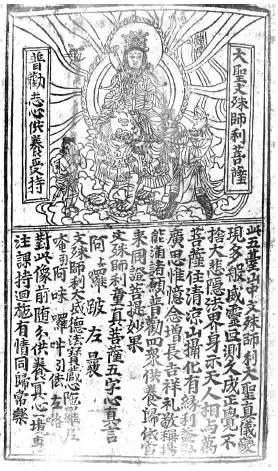 大聖文殊師利菩薩
普勸志心供養受持
此五臺山中文殊師利大聖真儀變
現多般威靈叵測久成正覺不
捨大悲隱法界身示天人相與萬
菩薩住清涼山攝化有緣利益弘
廣思惟憶念增長吉祥礼敬稱揚
能滿諸願普勸四衆供養歸依當
來同證菩提妙果
文殊師利童真菩薩五字心真言
阿上囉跛左曩
文殊師利大威德法寶藏心陀羅尼
唵引阿味囉吽引佉左洛
對此像前隨分供養冥心一境專
注課持迴施有情同歸常樂